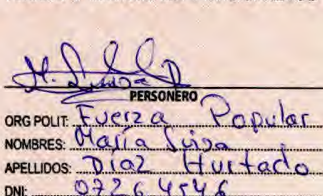 M. Luisa D
PERSONERO
ORG POLIT: Fuerza Popular
NOMBRES: María Luisa
APELLIDOS: Díaz Hurtado
DNI: 07264546